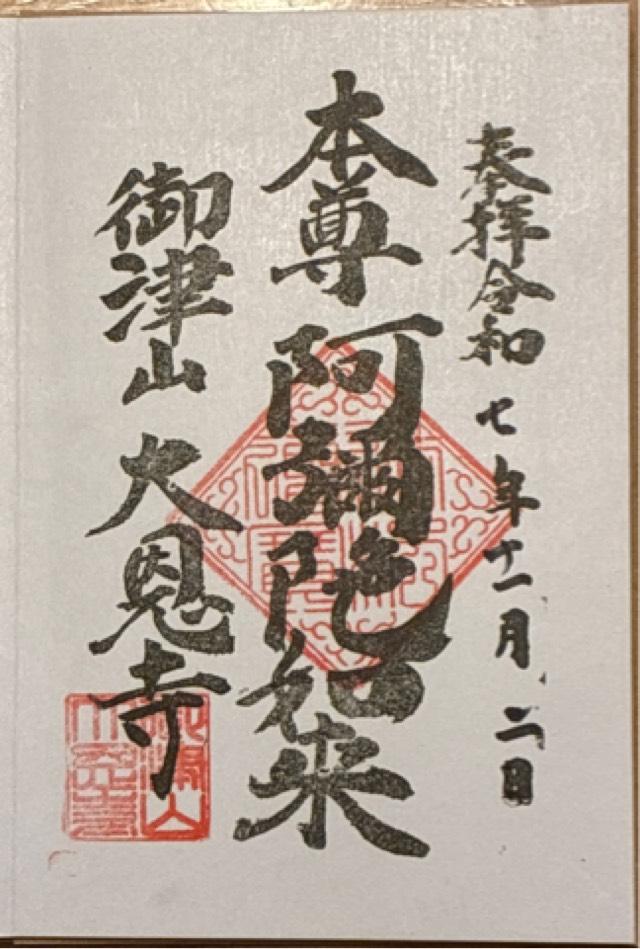 奉拝令和七年十一月二日
本尊阿彌陀如来
御津山大恩寺